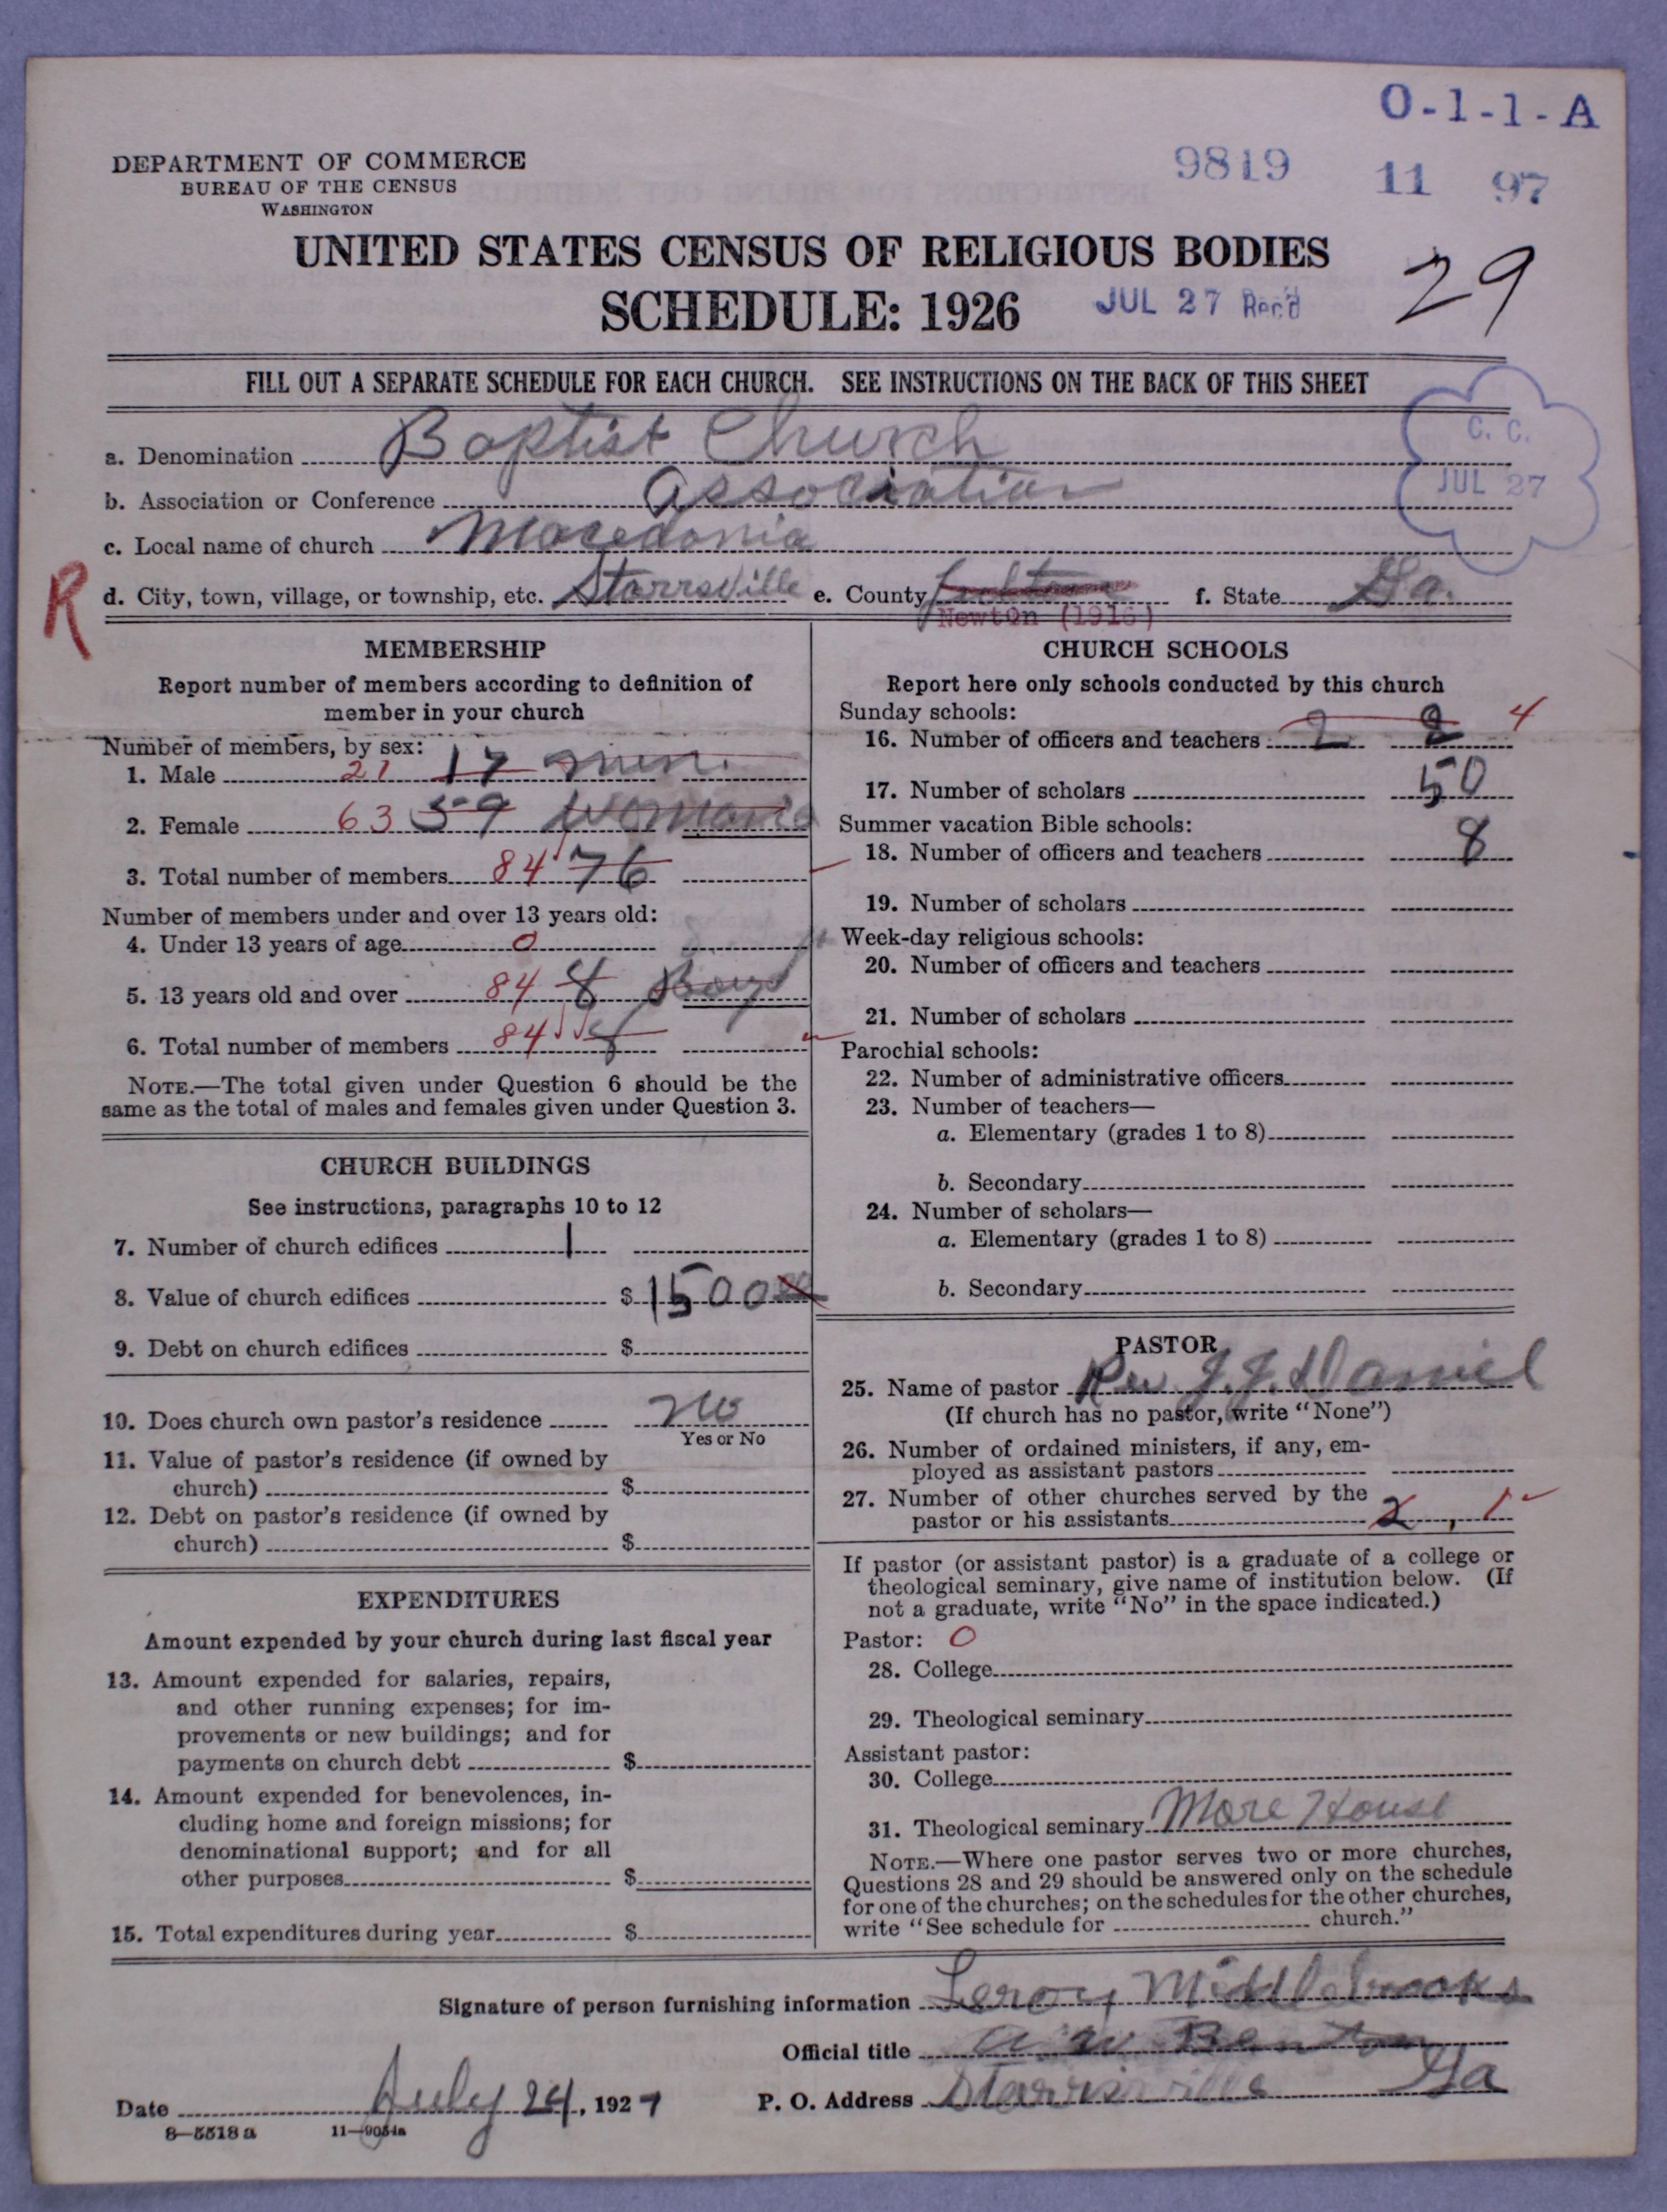 O-1-1-A
DEPARTMENT OF COMMERCE
BUREAU OF THE CENSUS
WASHINGTON
9819 11 97
UNITED STATES CENSUS OF RELIGIOUS BODIES
SCHEDULE: 1926
JUL 27 Rec'd
29
FILL OUT A SEPARATE SCHEDULE FOR EACH CHURCH. SEE INSTRUCTIONS ON THE BACK OF THIS SHEET
C. C.
JUL 27
a. Denomination Baptist Church
b. Association or Conference Association
c. Local name of church Macedonia
R
d. City, town, village, or township, etc. Starrsville e. County f. State Ga.
Newton (1916)
MEMBERSHIP
Report number of members according to definition of
member in your church
Number of members, by sex:
1. Male 21 17 men.
2. Female 63 59
3. Total number of members 84 76
Number of members under and over 13 years old:
4. Under 13 years of age 0
5. 13 years old and over 84 8 Boys
6. Total number of members 84 8
NOTE.—The total given under Question 6 should be the
same as the total of males and females given under Question 3.
CHURCH BUILDINGS
See instructions, paragraphs 10 to 12
7. Number of church edifices 1
8. Value of church edifices $ 1500 00
9. Debt on church edifices $
10. Does church own pastor's residence No
Yes or No
11. Value of pastor's residence (if owned by
church) $
12. Debt on pastor's residence (if owned by
church) $
EXPENDITURES
Amount expended by your church during last fiscal year
13. Amount expended for salaries, repairs,
and other running expenses; for im-
provements or new buildings; and for
payments on church debt $
14. Amount expended for benevolences, in-
cluding home and foreign missions; for
denominational support; and for all
other purposes $
15. Total expenditures during year $
CHURCH SCHOOLS
Report here only schools conducted by this church
Sunday schools:
16. Number of officers and teachers 2 2 4
17. Number of scholars 50
Summer vacation Bible schools:
18. Number of officers and teachers 8
19. Number of scholars
Week-day religious schools:
20. Number of officers and teachers
21. Number of scholars
Parochial schools:
22. Number of administrative officers
23. Number of teachers—
a. Elementary (grades 1 to 8)
b. Secondary
24. Number of scholars—
a. Elementary (grades 1 to 8)
b. Secondary
PASTOR
25. Name of pastor Rev J. J. Daniel
(If church has no pastor, write "None")
26. Number of ordained ministers, if any, em-
ployed as assistant pastors
27. Number of other churches served by the
pastor or his assistants 2, 1
If pastor (or assistant pastor) is a graduate of a college or
theological seminary, give name of institution below. (If
not a graduate, write "No" in the space indicated.)
Pastor: 0
28. College
29. Theological seminary
Assistant pastor:
30. College
31. Theological seminary More House
NOTE.—Where one pastor serves two or more churches,
Questions 28 and 29 should be answered only on the schedule
for one of the churches; on the schedules for the other churches,
write "See schedule for church."
Signature of person furnishing information Leroy Middlebrooks
Official title Benton
Date July 24, 1927 P. O. Address Starrsville Ga
8—5518a 11—9054a